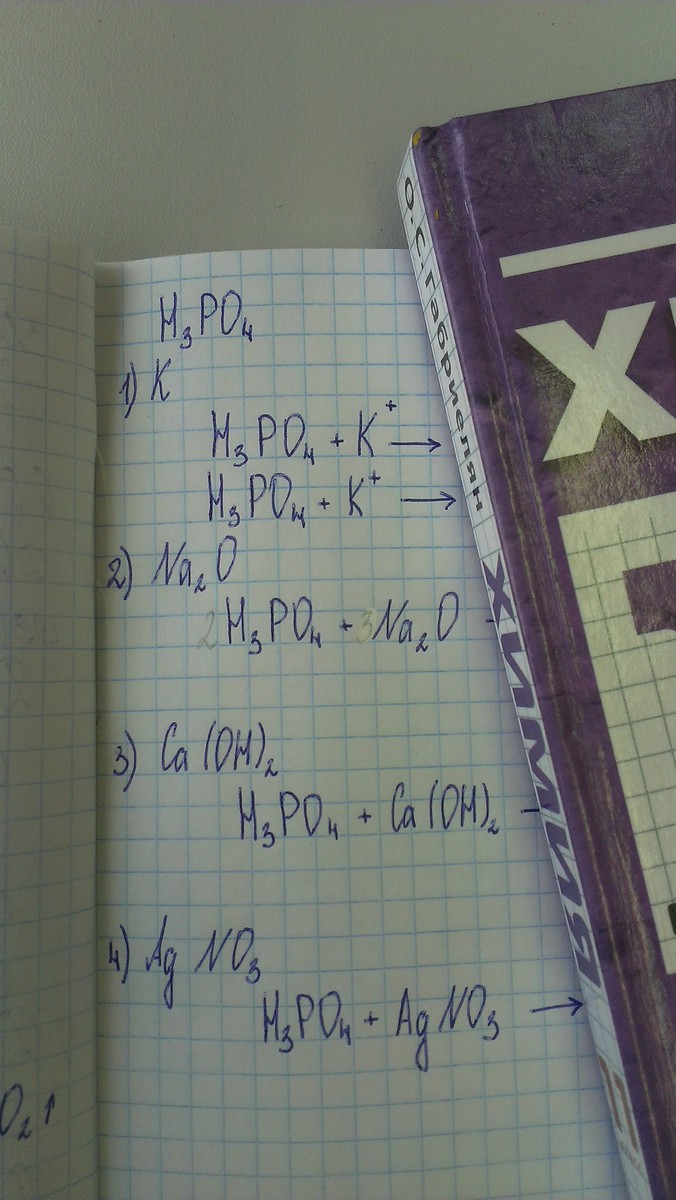 H₃PO₄
1) K
H₃PO₄ + K⁺ →
H₃PO₄ + K⁺ →
2) Na₂O
2H₃PO₄ + 3Na₂O -
3) Ca(OH)₂
H₃PO₄ + Ca(OH)₂ -
4) AgNO₃
H₃PO₄ + AgNO₃ →
O₂↑
О. С. Габриелян ХИМИЯ
Х